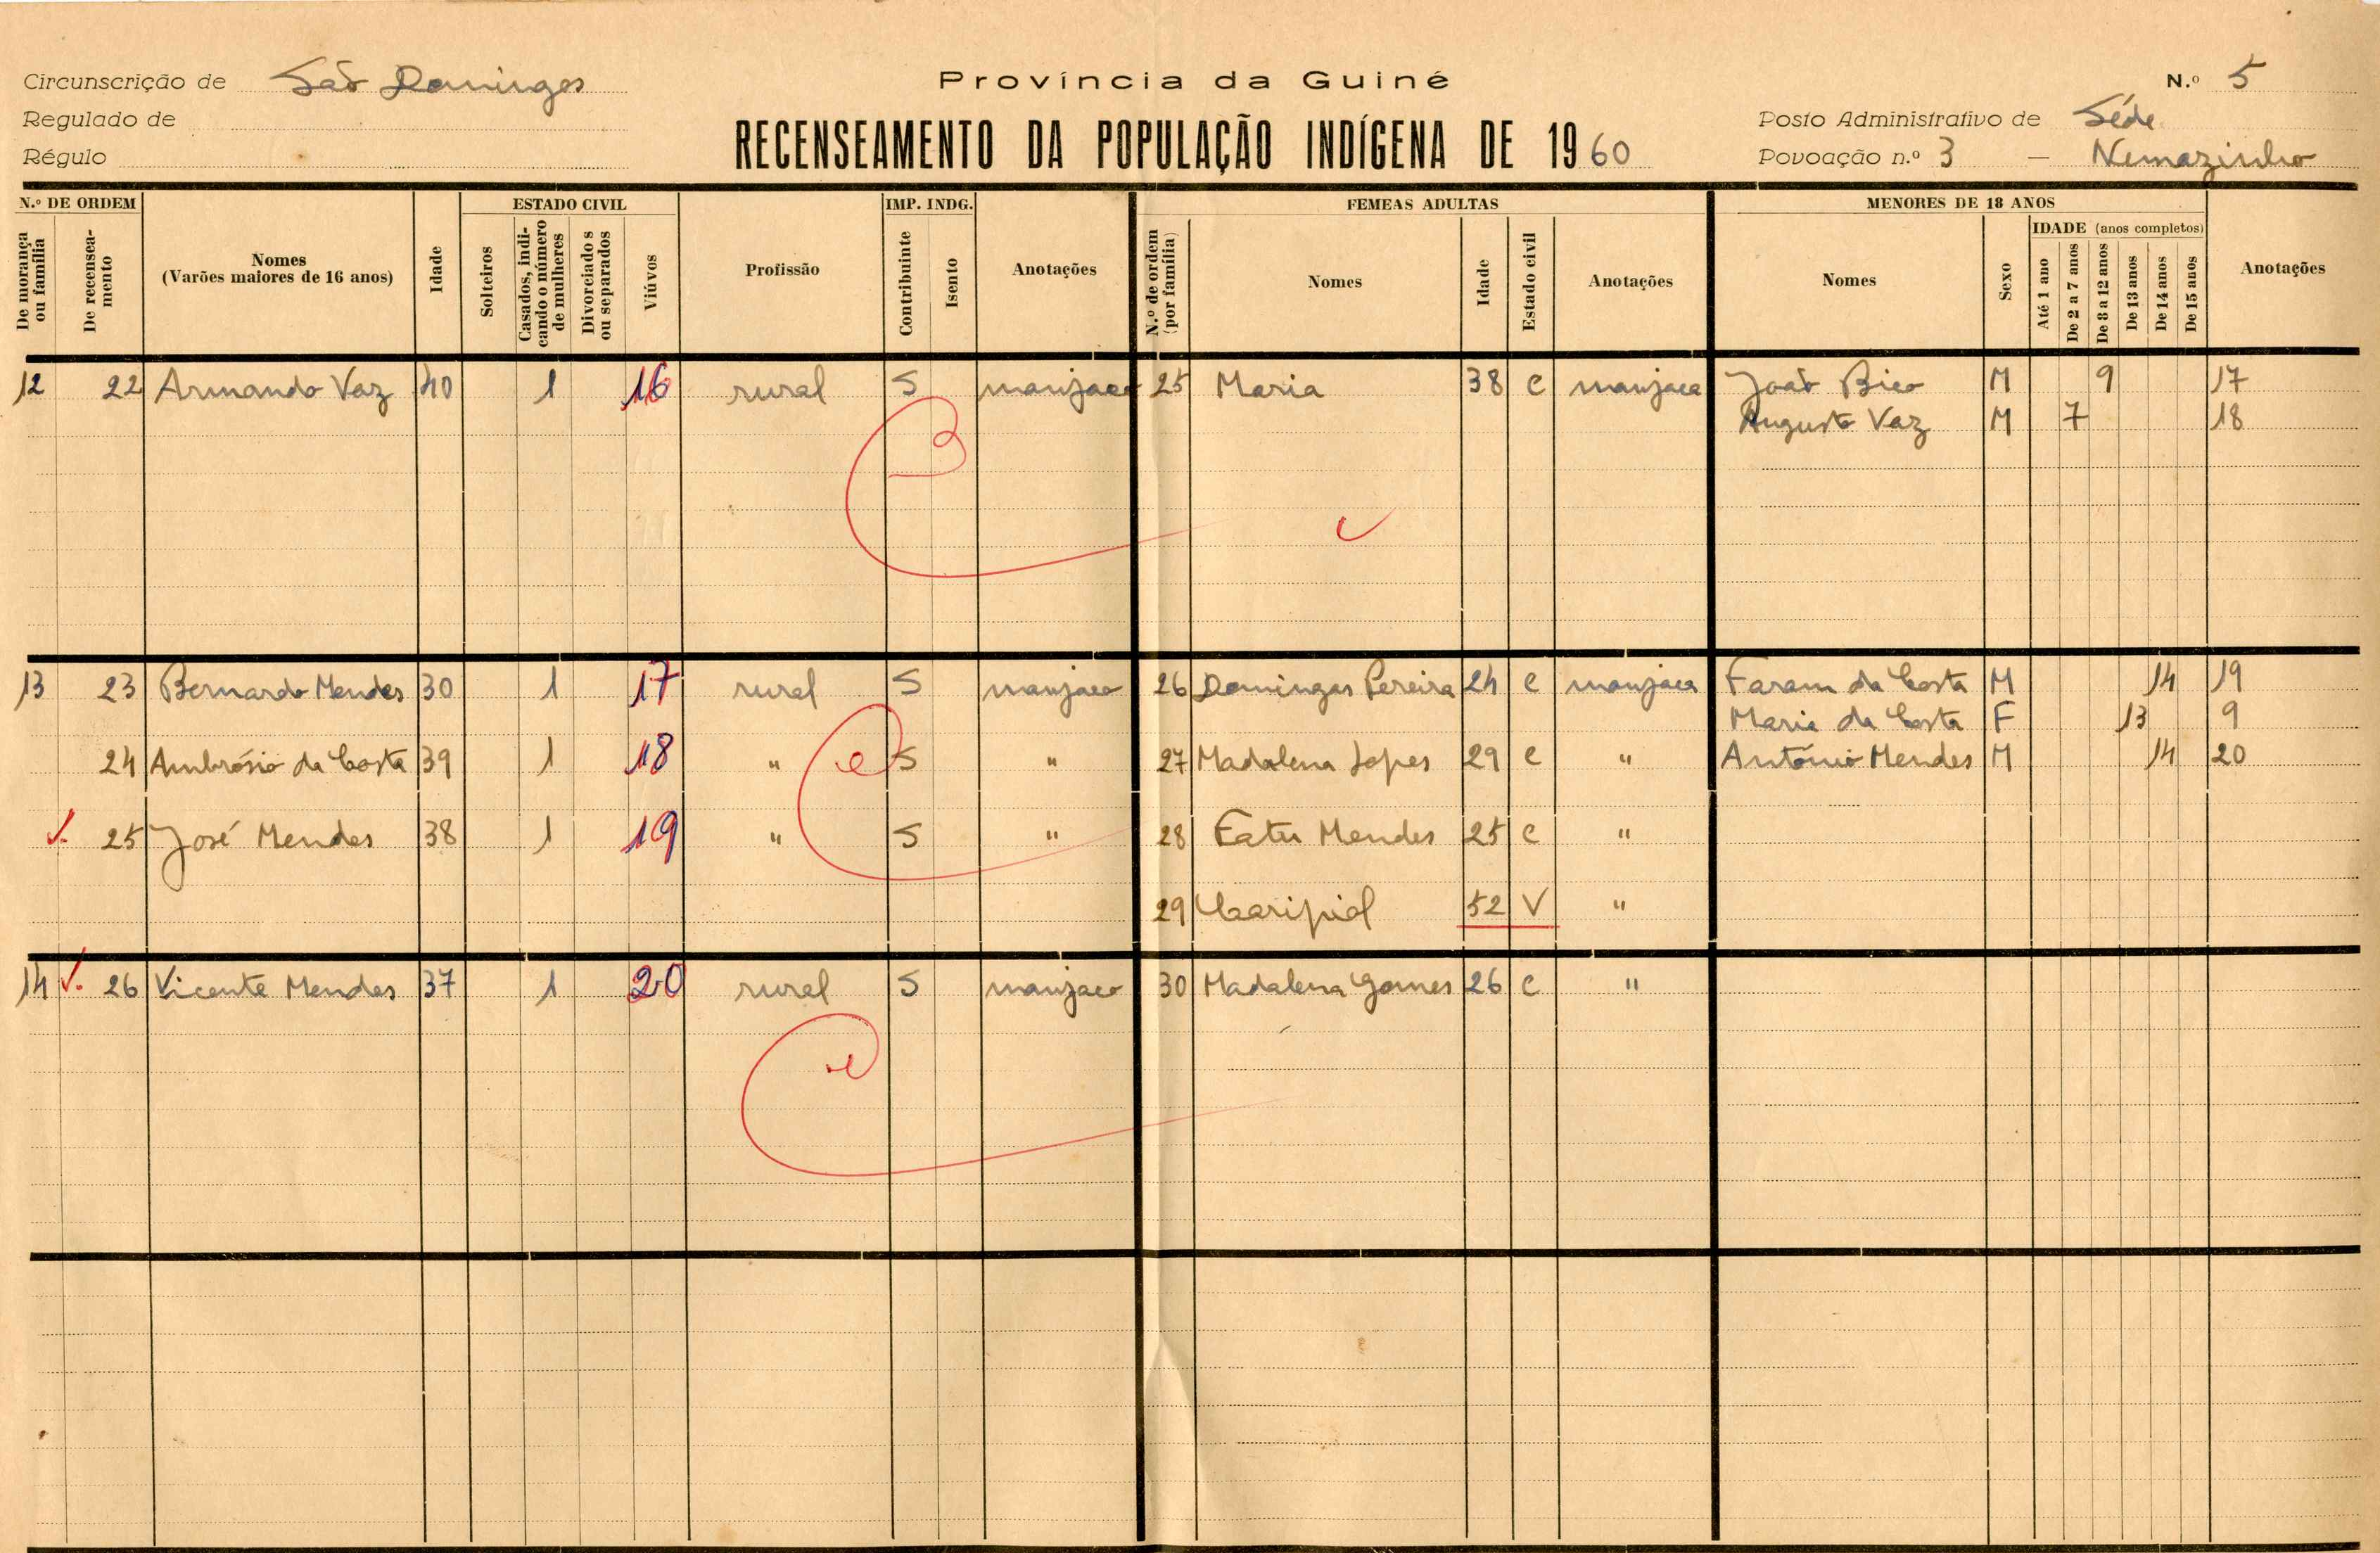 Circunscrição de São Domingos
Província da Guiné
N.º 5
Regulado de
Posto Administrativo de Séde
Régulo
RECENSEAMENTO DA POPULAÇÃO INDÍGENA DE 1960
Povoação n.º 3 — Nemazinho
N.º DE ORDEM
De morança ou família
De recenseamento
Nomes
(Varões maiores de 16 anos)
Idade
ESTADO CIVIL
Solteiros
Casados, indicando o número de mulheres
Divorciados ou separados
Viúvos
Profissão
IMP. INDG.
Contribuinte
Isento
Anotações
FEMEAS ADULTAS
N.º de ordem (por família)
Nomes
Idade
Estado civil
Anotações
MENORES DE 18 ANOS
Nomes
Sexo
IDADE (anos completos)
Até 1 ano
De 2 a 7 anos
De 8 a 12 anos
De 13 anos
De 14 anos
De 15 anos
Anotações
12 22 Armando Vaz 40 1 16 rural S manjaco 25 Maria 38 c manjaca João Bico M 9 17
Augusto Vaz M 7 18
13 23 Bernardo Mendes 30 1 17 rural S manjaco 26 Domingas Pereira 24 c manjaca Faram da Costa M 14 19
Maria da Costa F 13 9
24 Ambrósio da Costa 39 1 18 " S " 27 Madalena Lopes 29 c " António Mendes M 14 20
25 José Mendes 38 1 19 " S " 28 Fatu Mendes 25 c "
29 52 V "
14 26 Vicente Mendes 37 1 20 rural S manjaco 30 Madalena Gomes 26 c "